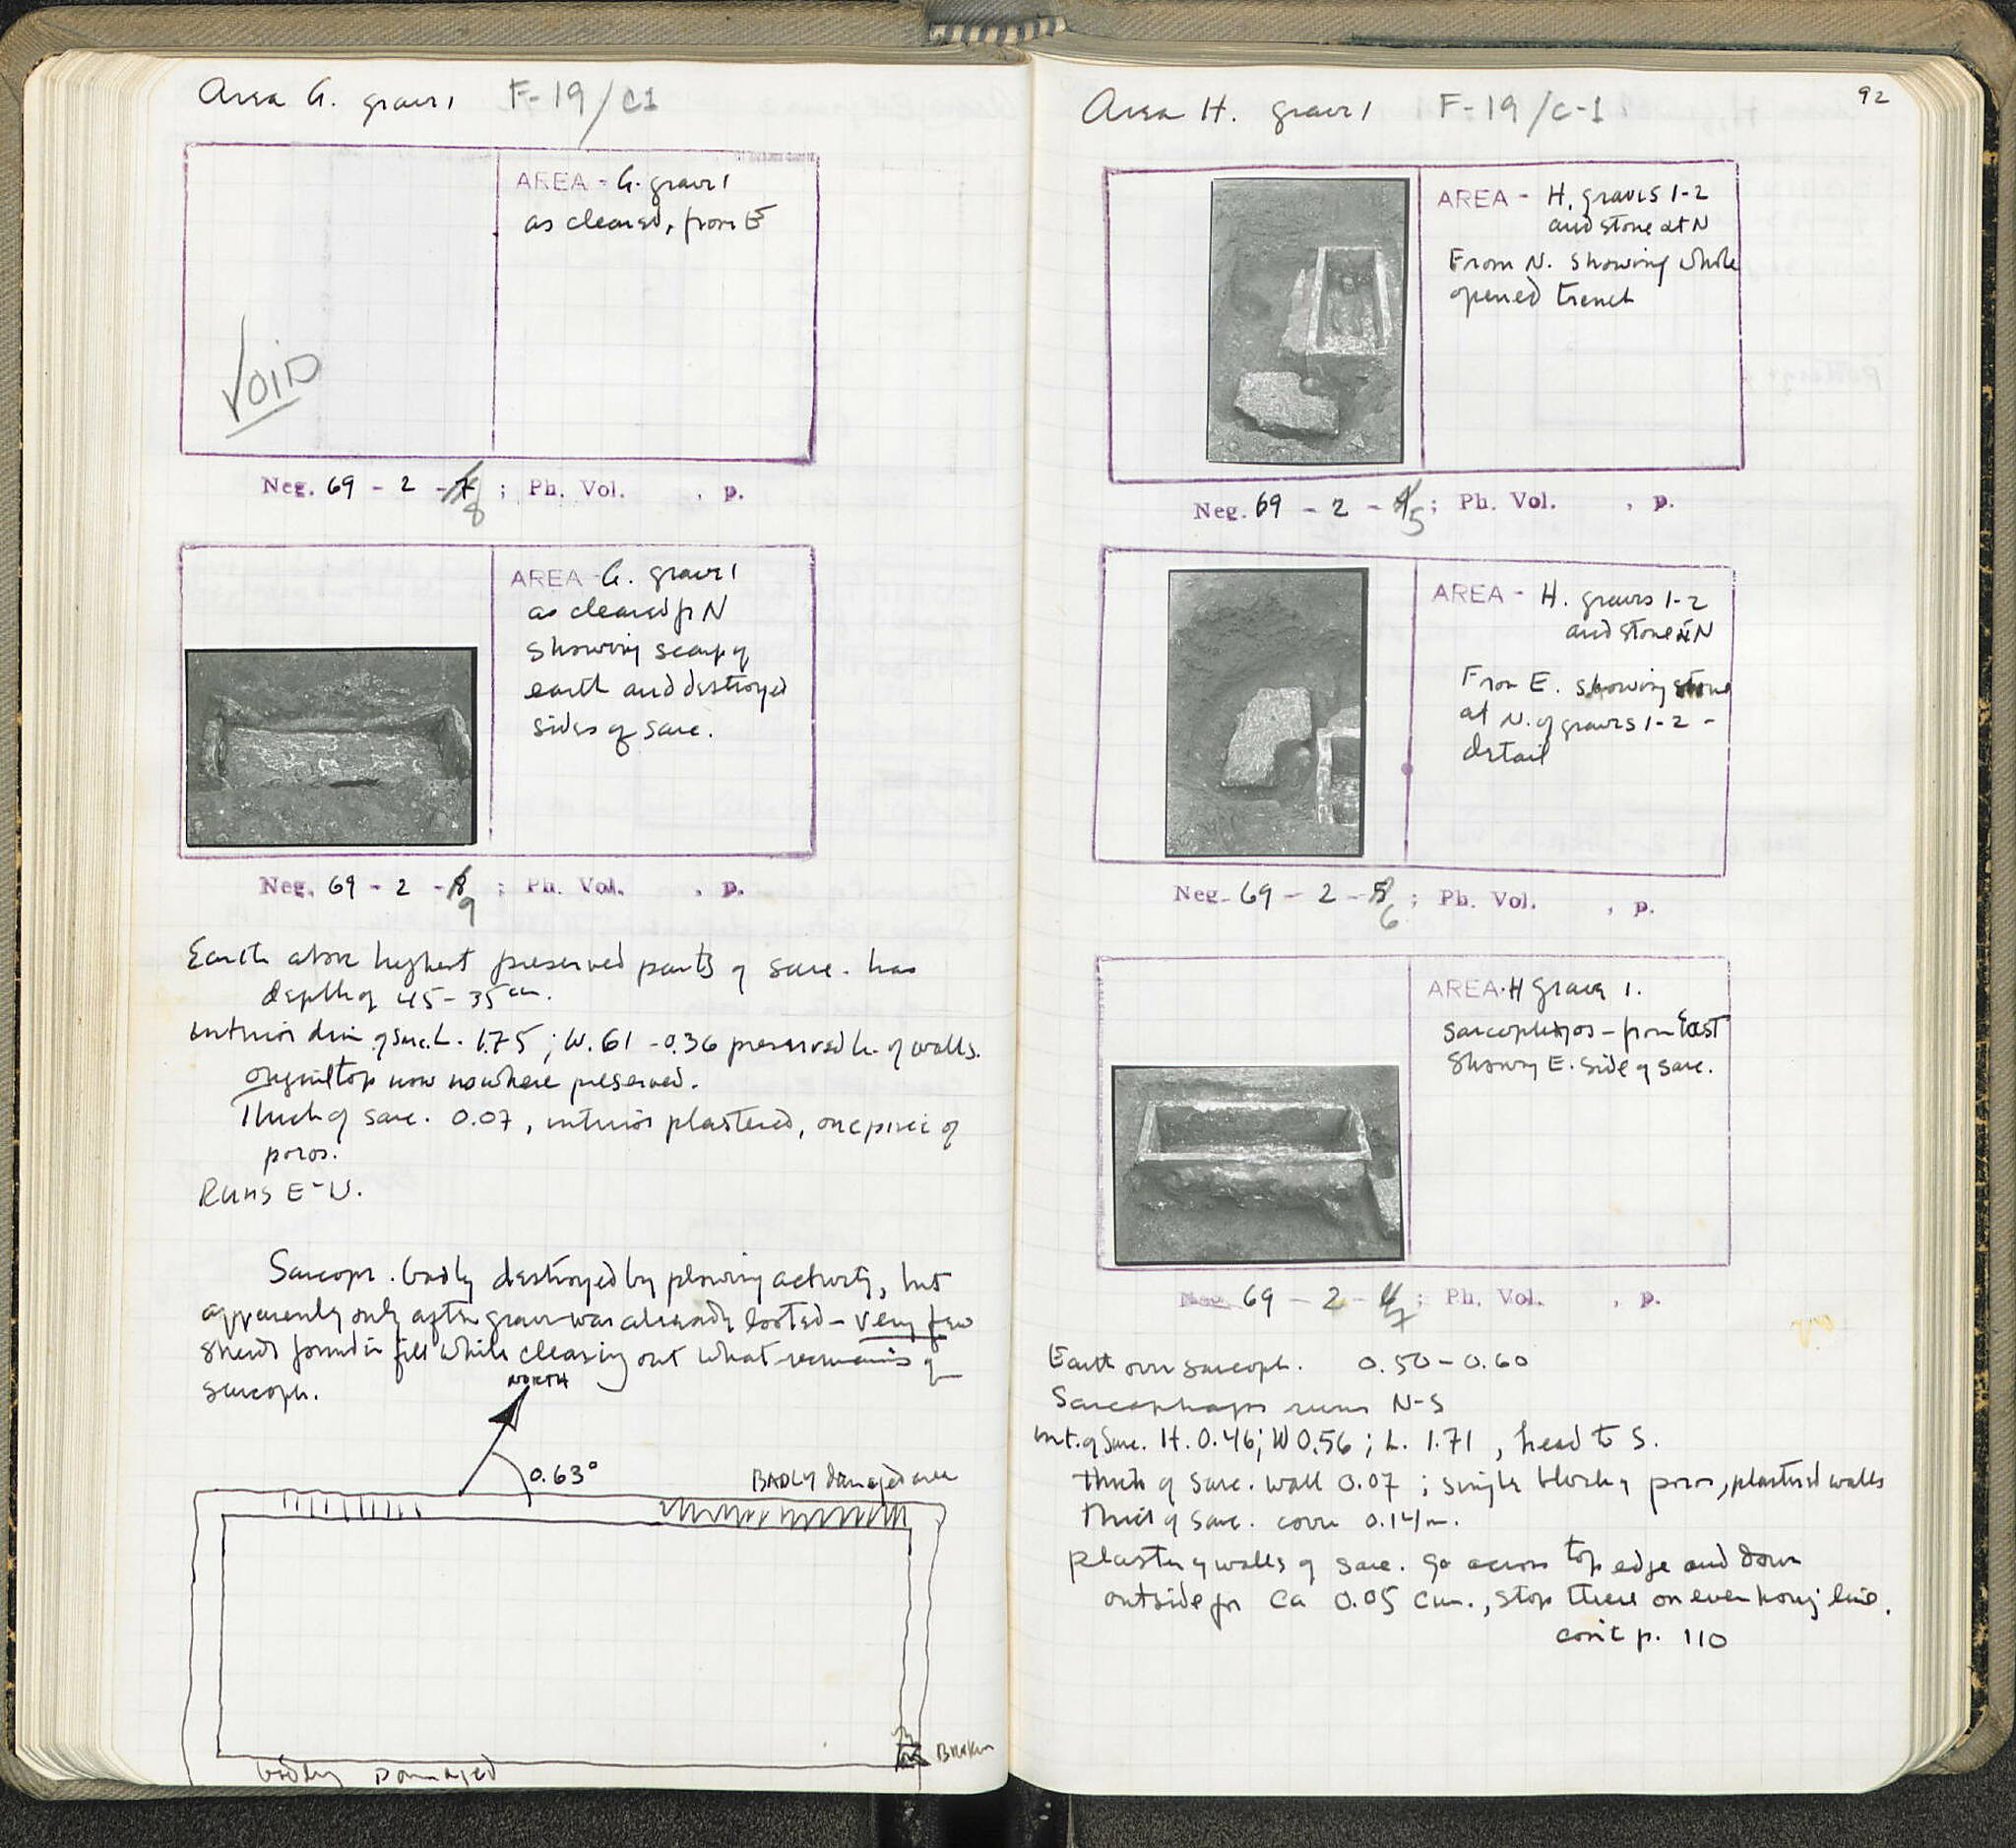 Area G. grave 1 F-19/C1
AREA - G. grave 1
as cleared, from E
VOID
Neg. 69 - 2 - 7 8 ; Ph. Vol. , p.
AREA - G. grave 1
as cleared fr N
showing scarp of
earth and destroyed
sides of sarc.
Neg. 69 - 2 - 8 9 ; Ph. Vol. , p.
Earth above highest preserved parts of sarc. has
depth of 45-35 cm.
interior dim. of sarc. L. 1.75 ; W. 61 - 0.36 preserved h. of walls.
original top now nowhere preserved.
Thick of sarc. 0.07, interior plastered, one piece of
poros.
Runs E-W.
Sarcoph. badly destroyed by plowing activity, but
apparently only after grave was already looted - very few
sherds found in fill while cleaning out what remains of
sarcoph.
NORTH
0.63°
BADLY damaged area
Broken
badly Damaged
92
Area H. grave 1 F-19/C-1
AREA - H. graves 1-2
and stone at N
From N. showing whole
opened trench
Neg. 69 - 2 - 4 5 ; Ph. Vol. , p.
AREA - H. graves 1-2
and stone at N
From E. showing stone
at N. of graves 1-2 -
detail
Neg. 69 - 2 - 5 6 ; Ph. Vol. , p.
AREA - H grave 1.
sarcophagos - from East
showing E. side of sarc.
Neg. 69 - 2 - 6 7 ; Ph. Vol. , p.
Earth over sarcoph. 0.50 - 0.60
Sarcophagos runs N-S
int. of sarc. H. 0.46; W 0.56 ; L. 1.71 , head to S.
thick of sarc. wall 0.07 ; single block of poros, plastered walls
thick of sarc. cover 0.14 m.
plaster of walls of sarc. go across top edge and down
outside for ca 0.05 cm., stop there on even horiz line.
con't p. 110